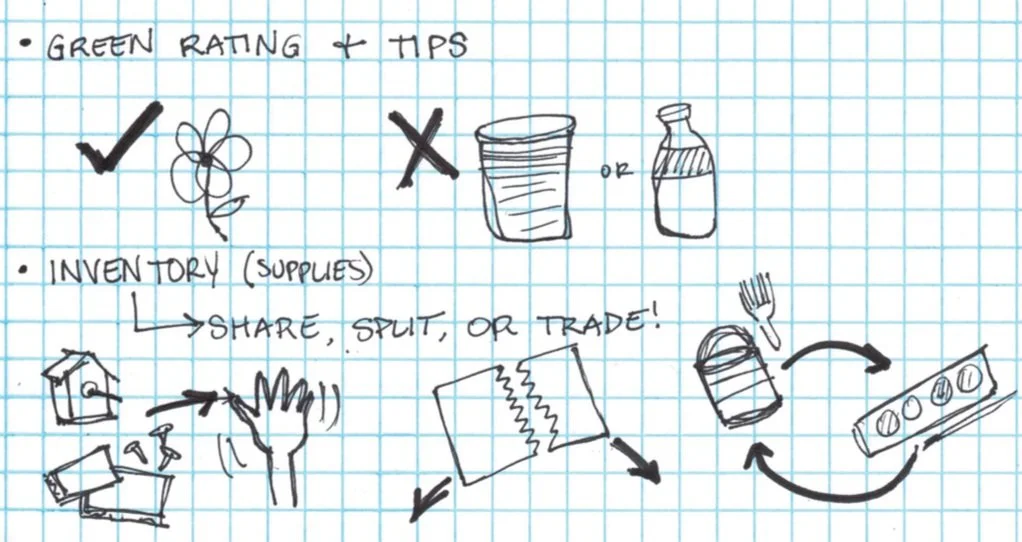 • GREEN RATING + TIPS
OR
• INVENTORY (SUPPLIES)
SHARE, SPLIT, OR TRADE!